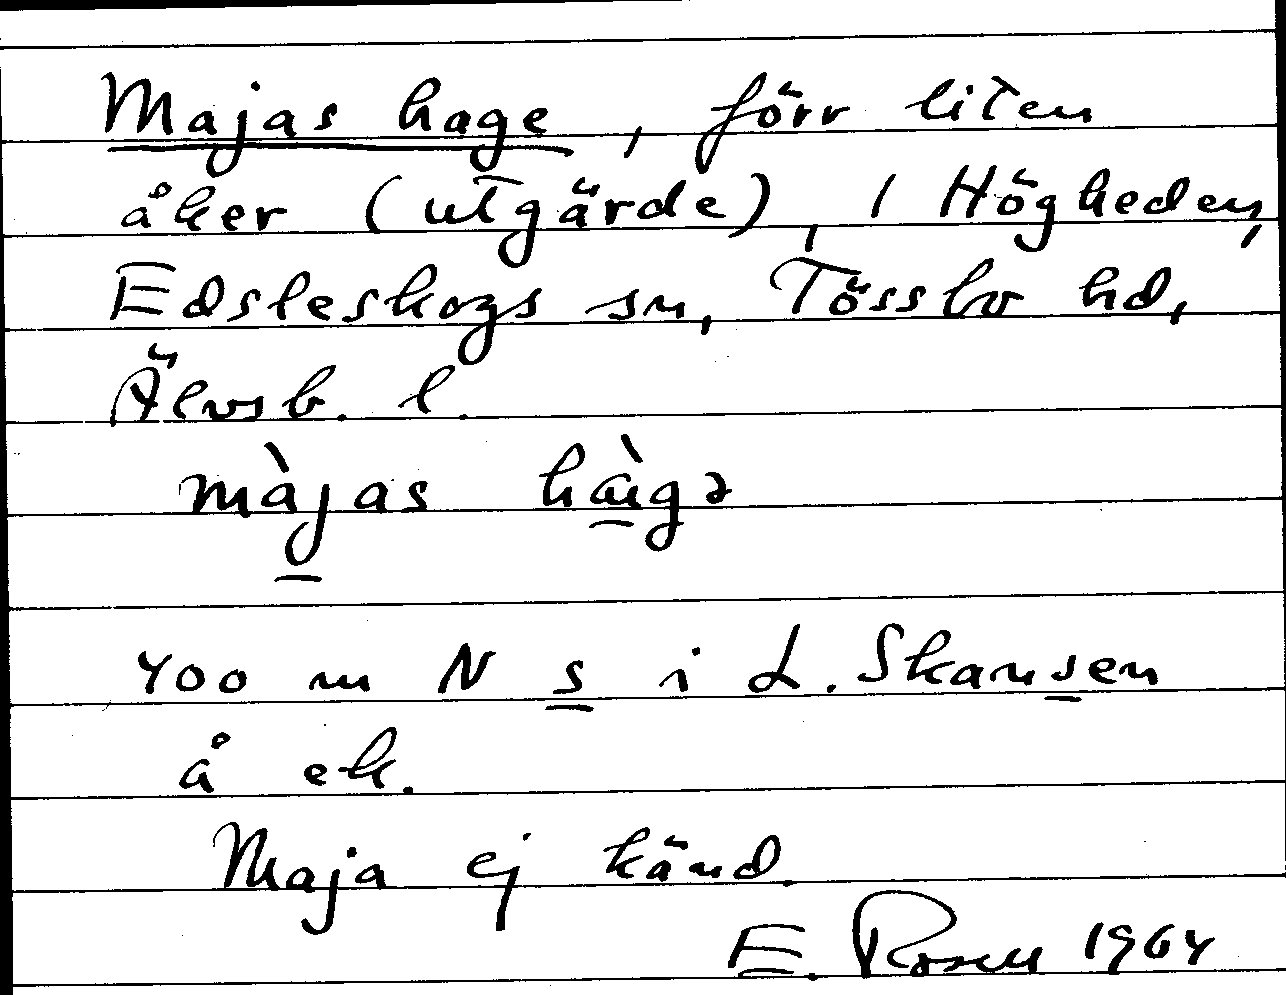 Majas hage, förr liten
åker (utgärde), 1 Högheden,
Edsleskogs sn, Tössbo hd,
Älvsb. l.
màjas hàgə
400 m N s i L. Skansen
å ek.
Maja ej känd.
E. Rosell 1964